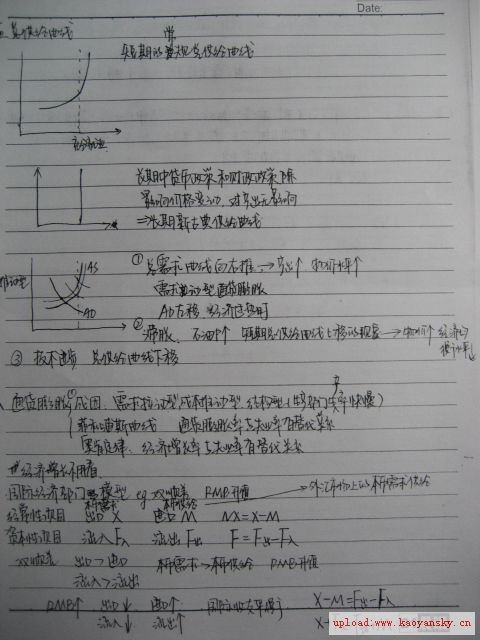 Date:
总供给曲线
常
短期的普规总供给曲线
充分就业
长期中货币政策和财政政策除
影响价格变动,对产出无影响
⇒长期新古典供给曲线
AS
AD
①总需求曲线向右推 → 产出↑ 物价水平↑
需求拉动型通货膨胀
AD左移 经济
②滞胀, 石油↑ 短期总供给曲线上移的现象 → 物价↑ 经济
③ 技术进步 总供给曲线下移
通货膨胀成因:需求拉动型 成本推动型 结构型
菲利普斯曲线 通货膨胀率与失业率有替代关系
奥肯定律: 经济增长率与失业率有替代关系
经济增长不用看.
国际经济部门 模型 eg 双顺差 RMB升值
外汇市场上的 需求供给
经常性项目 出口 X 进口 M NX=X-M
资本性项目 流入 F入 流出 F出 F=F出-F入
双顺差 出口>进口 需求>供给 RMB升值
流入>流出
RMB↑ 出口↓ 进口↑ 国际收支平衡 X-M=F出-F入
流入↓ 流出↑
upload:www.kaoyansky.cn